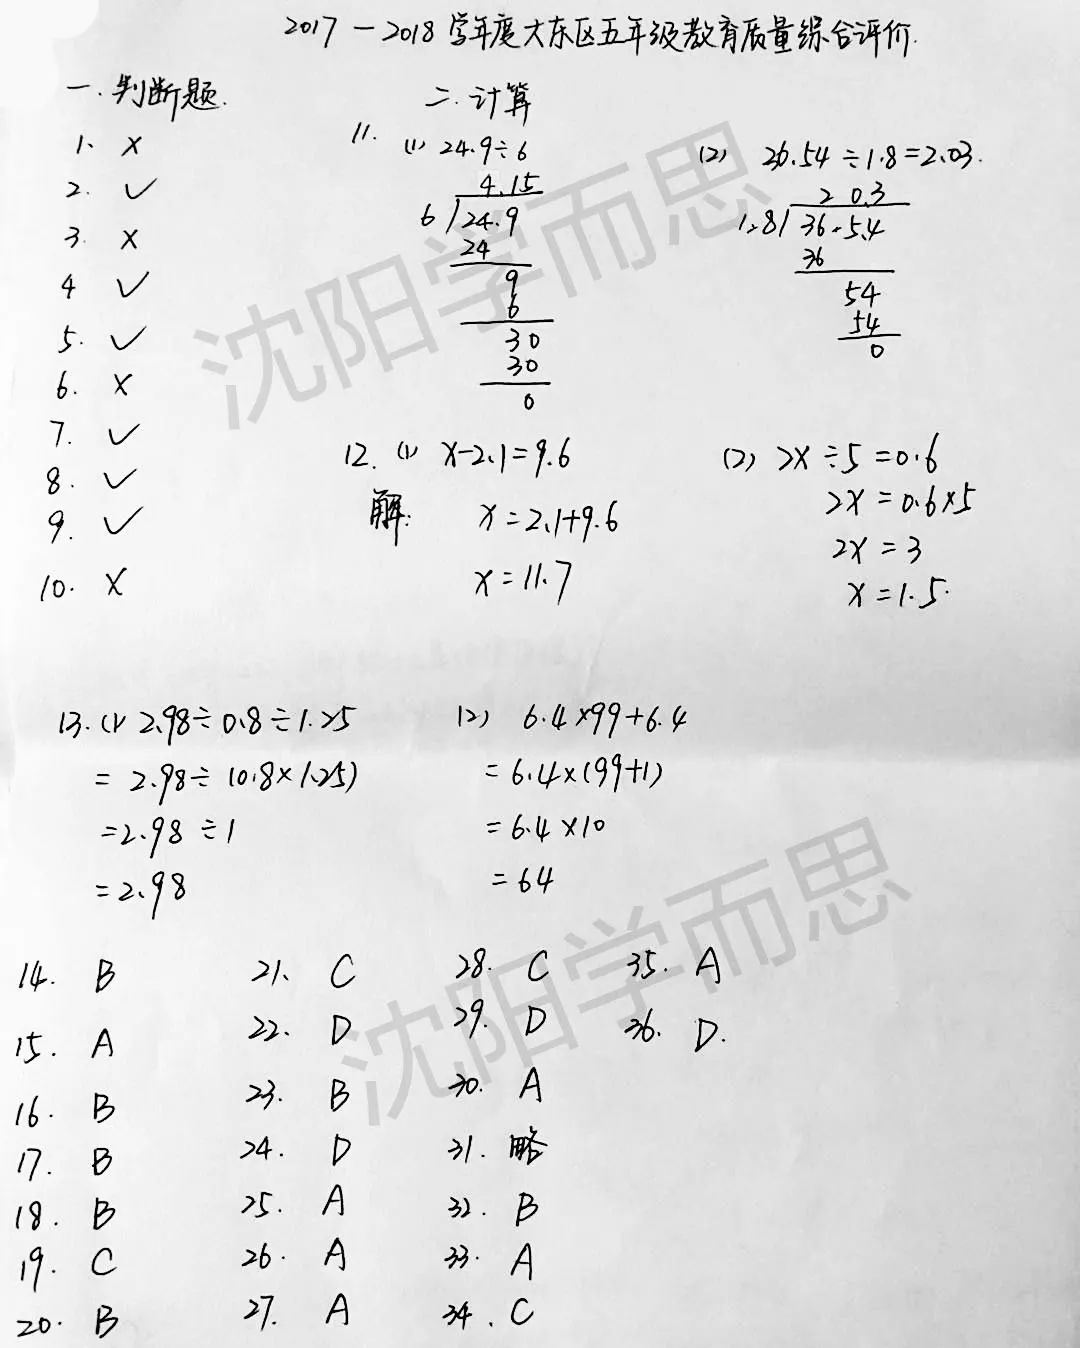 2017-2018学年度大东区五年级教育质量综合评价.
一.判断题.
1、 ×
2. ✓
3. ×
4 ✓
5. ✓
6. ×
7. ✓
8. ✓
9. ✓
10. ×
二.计算
11. (1) 24.9÷6
4.15
6 24.9
24
9
6
30
30
0
(2) 36.54÷1.8=2.03.
2 0.3
1.8 36.5.4
36
54
54
0
12. (1) x-2.1=9.6
解: x=2.1+9.6
x=11.7
(2) 2x÷5=0.6
2x=0.6×5
2x=3
x=1.5.
13. (1) 2.98÷0.8÷1.25
=2.98÷(0.8×1.25)
=2.98÷1
=2.98
(2) 6.4×99+6.4
=6.4×(99+1)
=6.4×10
=64
14. B
15. A
16. B
17. B
18. B
19. C
20. B
21、 C
22. D
23. B
24. D
25. A
26. A
27. A
28. C
29. D
30. A
31. 略
32. B
33. A
34. C
35. A
36. D.
沈阳学而思
沈阳学而思